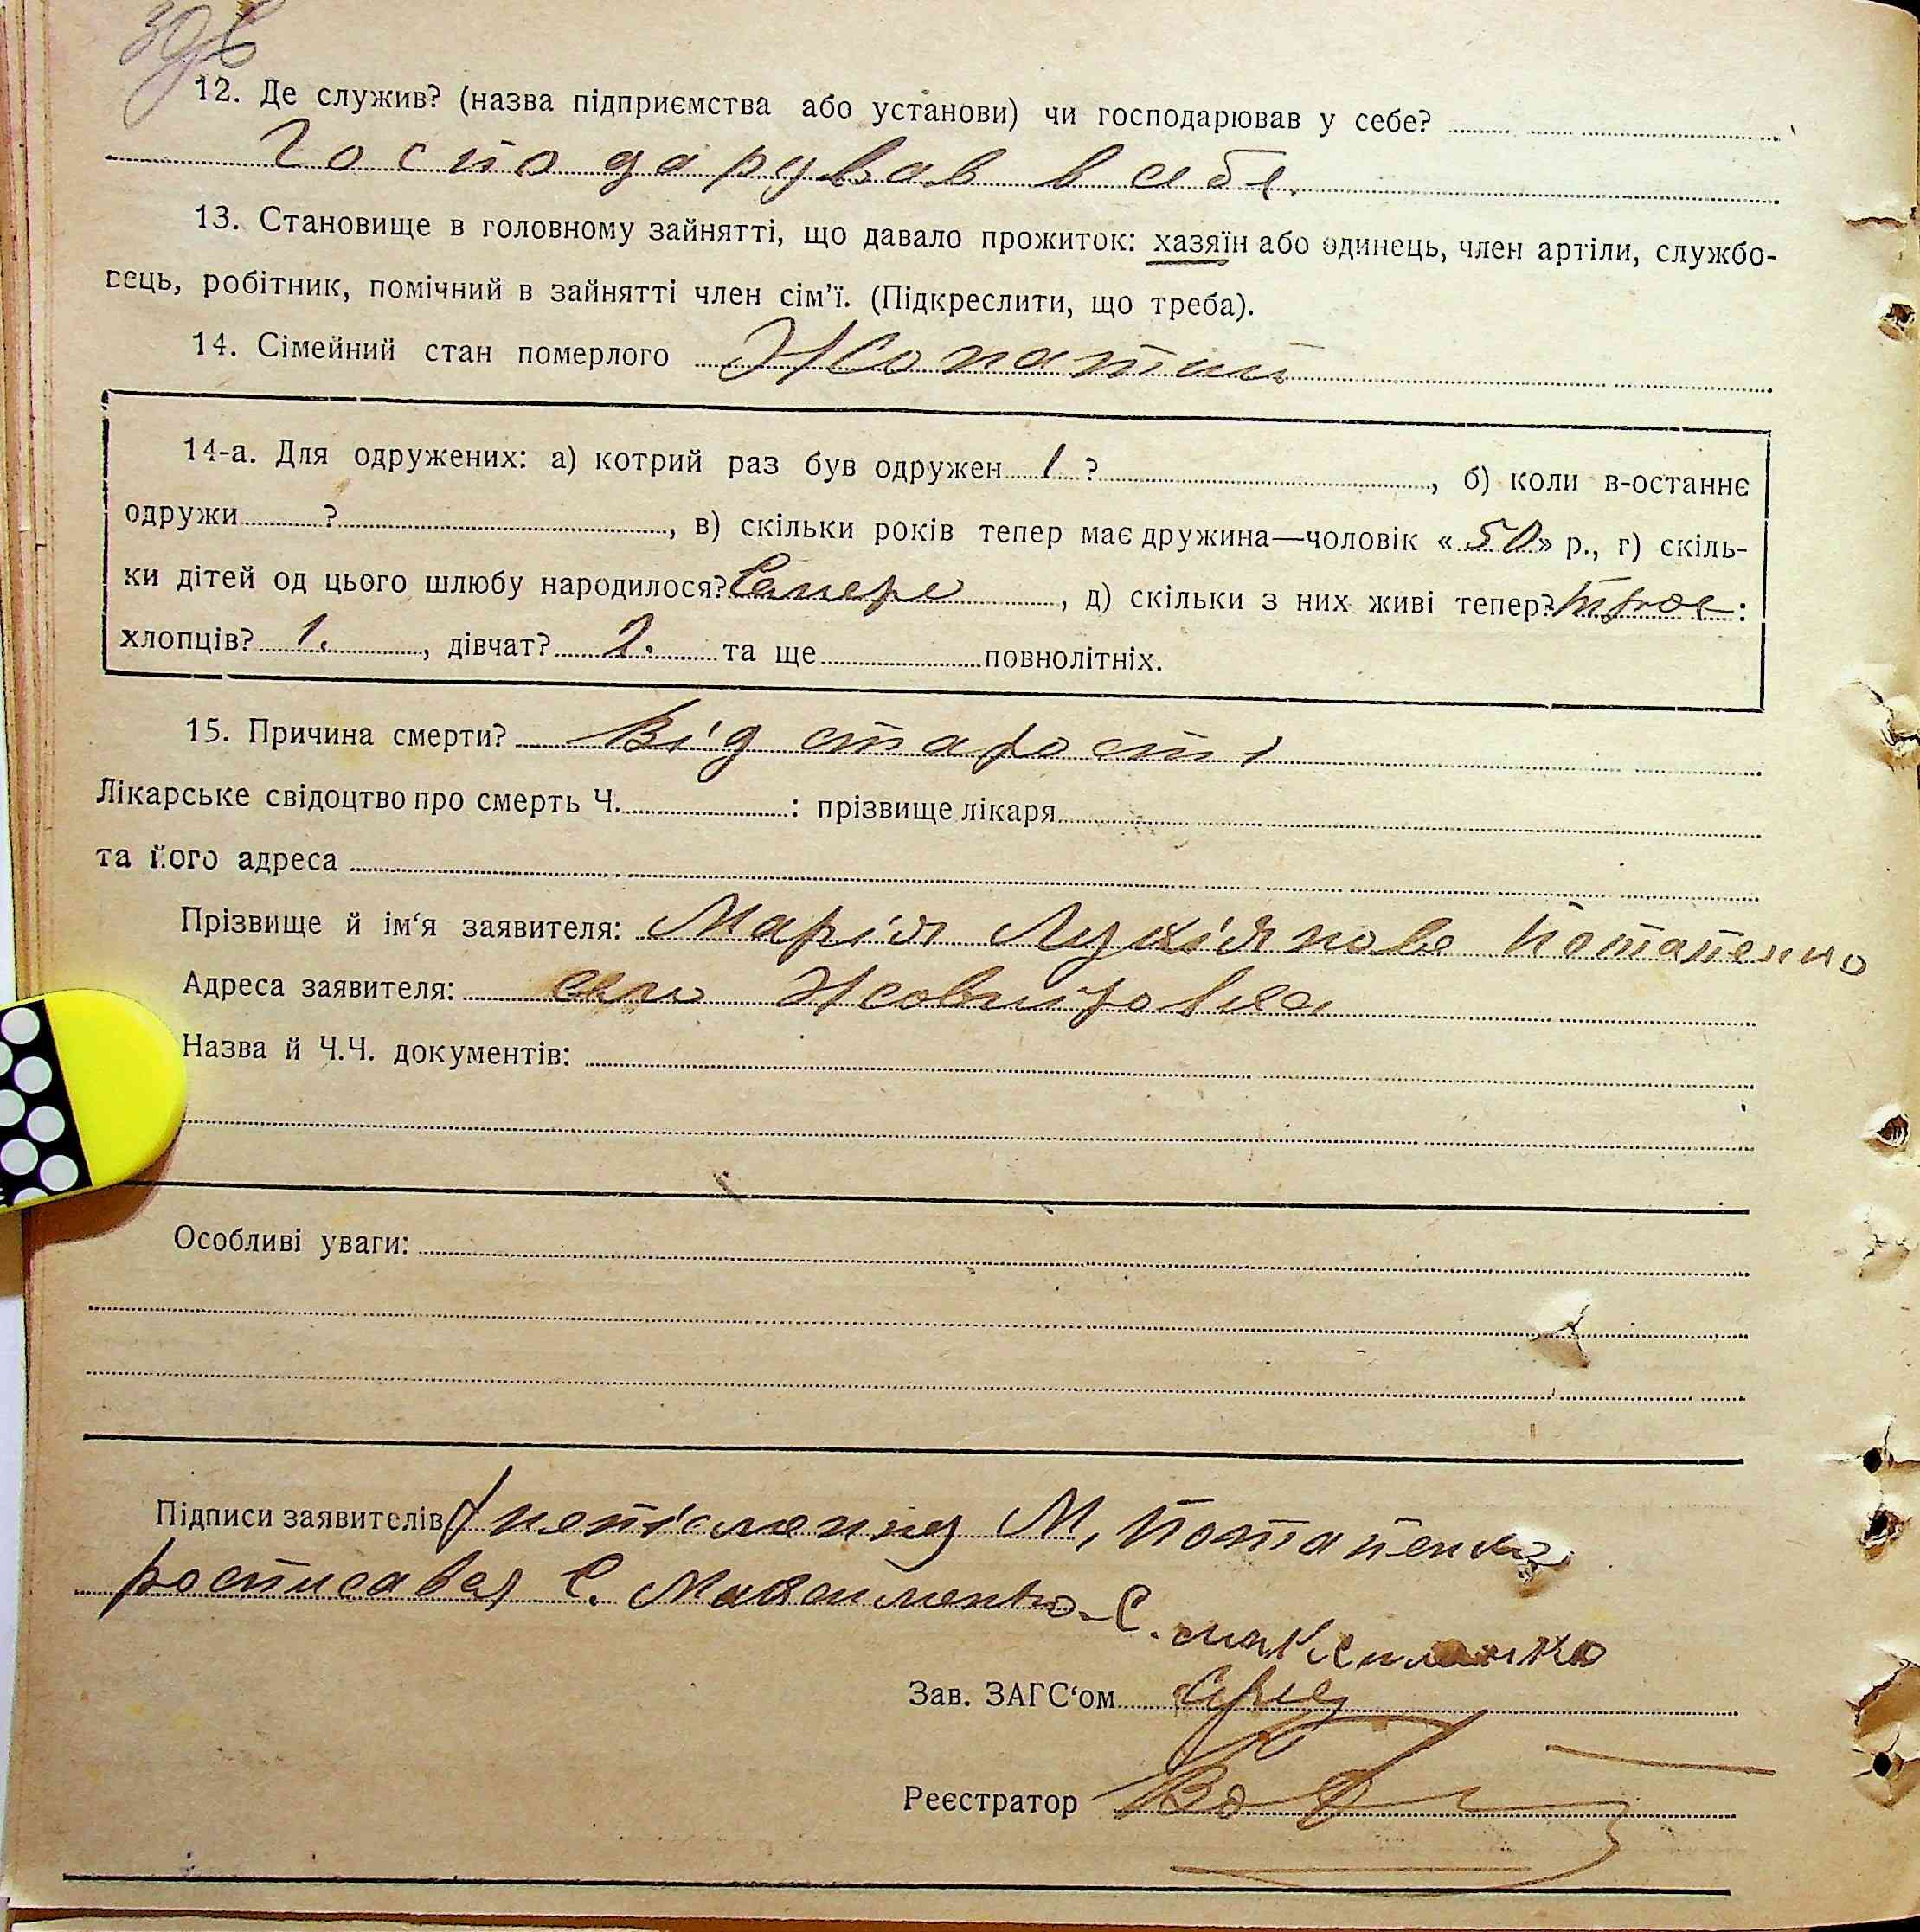 12. Де служив? (назва підприємства або установи) чи господарював у себе?
Господарував в себе.
13. Становище в головному зайнятті, що давало прожиток: хазяїн або одинець, член артіли, службо-
вець, робітник, помічний в зайнятті член сім’ї. (Підкреслити, що треба).
14. Сімейний стан померлого Жонатий
14-а. Для одружених: а) котрий раз був одружен 1 ?, б) коли в-останнє
одружи ?, в) скільки років тепер має дружина—чоловік «50» р., г) скіль-
ки дітей од цього шлюбу народилося?, д) скільки з них живі тепер? трое:
хлопців? 1., дівчат? 2. та ще повнолітніх.
15. Причина смерти? Від старости
Лікарське свідоцтво про смерть Ч. : прізвище лікаря
та його адреса
Прізвище й ім‘я заявителя: Марія Лукіянова Потапенко
Адреса заявителя: село Жовніровка
Назва й Ч.Ч. документів:
Особливі уваги:
Підписи заявителів М. Потапенко
росписавсь С. Максименко - С. Максименко
Зав. ЗАГС‘ом
Реєстратор